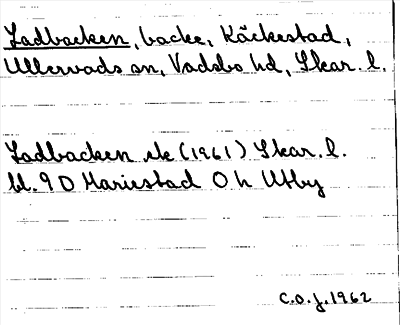 Ladbacken, backe, Käckestad,
Ullervads sn, Vadsbo hd, Skar. l.
Ladbacken ek (1961) Skar. l.
bl. 9 D Mariestad O h Utby
C.O.J. 1962